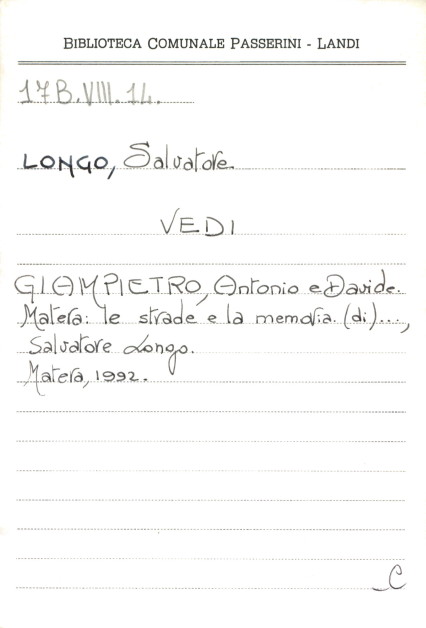 BIBLIOTECA COMUNALE PASSERINI - LANDI
17B.VIII.14.
LONGO, Salvatore.
VEDI
GIAMPIETRO, Antonio e Davide.
Matera: le strade e la memoria. (di)...,
Salvatore Longo.
Matera, 1992.
C